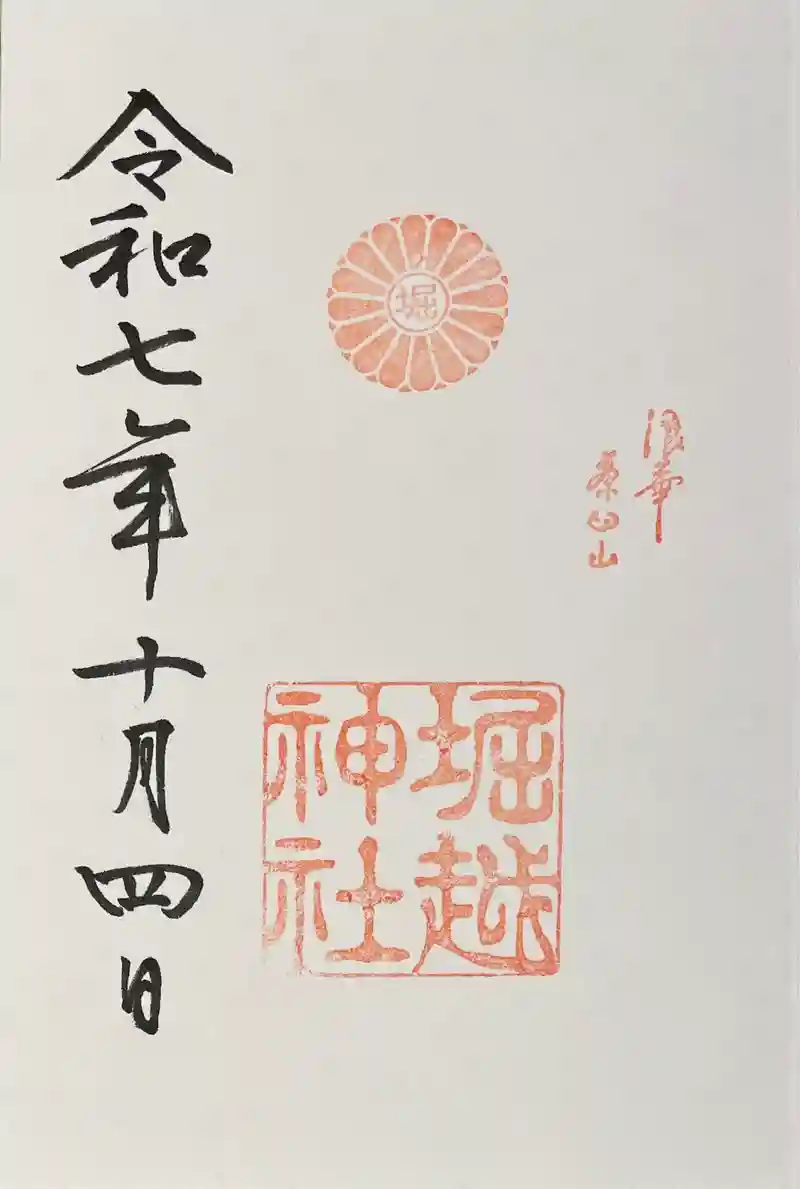 浪華
茶臼山
堀
堀越
神社
令和七年十月四日